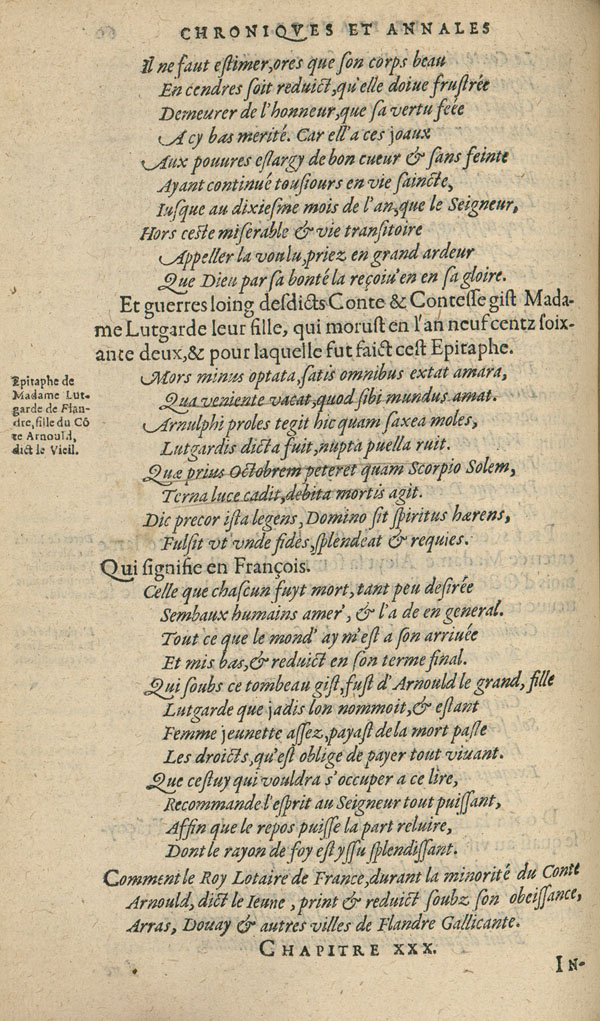 CHRONIQVES ET ANNALES
Il ne faut estimer, ores que son corps beau
En cendres soit reduict, qu'elle doiue frustrée
Demeurer de l'honneur, que sa vertu feée
A cy bas merité. Car ell' a ces joaux
Aux pouures eslargy de bon cueur & sans feinte
Ayant continué tousiours en vie saincte,
Iusque au dixiesme mois de l'an, que le Seigneur,
Hors ceste miserable & vie transitoire
Appeller la voulu, priez en grand ardeur
Que Dieu par sa bonté la reçoiu' en en sa gloire.
Et guerres loing desdicts Conte & Contesse gist Mada-
me Lutgarde leur fille, qui morust en l'an neuf centz soix-
ante deux, & pour laquelle fut faict cest Epitaphe.
Epitaphe de
Madame Lut-
garde de Flan-
dre, fille du Cō
te Arnould,
dict le Vieil.
Mors minus optata, satis omnibus extat amara,
Qua veniente vacat, quod sibi mundus amat.
Arnulphi proles tegit hic quam saxea moles,
Lutgardis dicta fuit, nupta puella ruit.
Quæ prius Octobrem peteret quam Scorpio Solem,
Terna luce cadit, debita mortis agit.
Dic precor ista legens, Domino sit spiritus hærens,
Fulsit vt vnde fides, splendeat & requies.
Qui signifie en François.
Celle que chascun fuyt mort, tant peu desirée
Sembaux humains amer', & l'a de en general.
Tout ce que le mond' ay m'est a son arriuée
Et mis bas, & reduict en son terme final.
Qui soubs ce tombeau gist, fust d'Arnould le grand, fille
Lutgarde que jadis lon nommoit, & estant
Femme jeunette assez, payast de la mort pasle
Les droicts, qu'est oblige de payer tout viuant.
Que cestuy qui vouldra s'occuper a ce lire,
Recommande l'esprit au Seigneur tout puissant,
Affin que le repos puisse la part reluire,
Dont le rayon de foy est yssu splendissant.
Comment le Roy Lotaire de France, durant la minorité du Conte
Arnould, dict le Ieune, print & reduict soubz son obeissance,
Arras, Douay & autres villes de Flandre Gallicante.
CHAPITRE XXX.
IN-